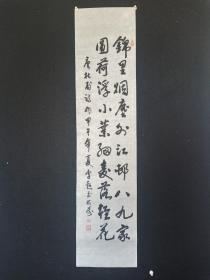 錦里烟塵外江邨八九家
圓荷浮小葉細麥落輕花
唐杜甫詩
甲午年夏